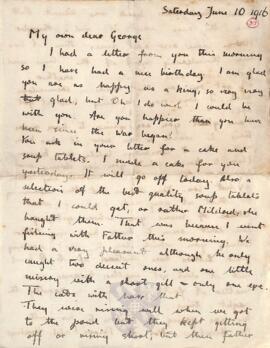 Saturday June 10 1916
My own dear George
I had a letter from you this morning
so I have had a nice birthday. I am glad
you are as happy as a king, so very very
glad, but Oh! I do wish I could be
with you. Are you happier than you have
been since the war began?
You ask in your letter for a cake and
soup tablets. I made a cake for you
yesterday. It will go off today. Also a
selection of the best quality soup tablets
that I could get, or rather Mildred, she
bought them. That was because I went
fishing with Father this morning. We
had a very pleasant although he only
caught two decent ones, and one little
missing with a short gill & only one eye.
The cats will have that
They were rising well when we got
to the pond but they kept getting
off or rising short, but then Father